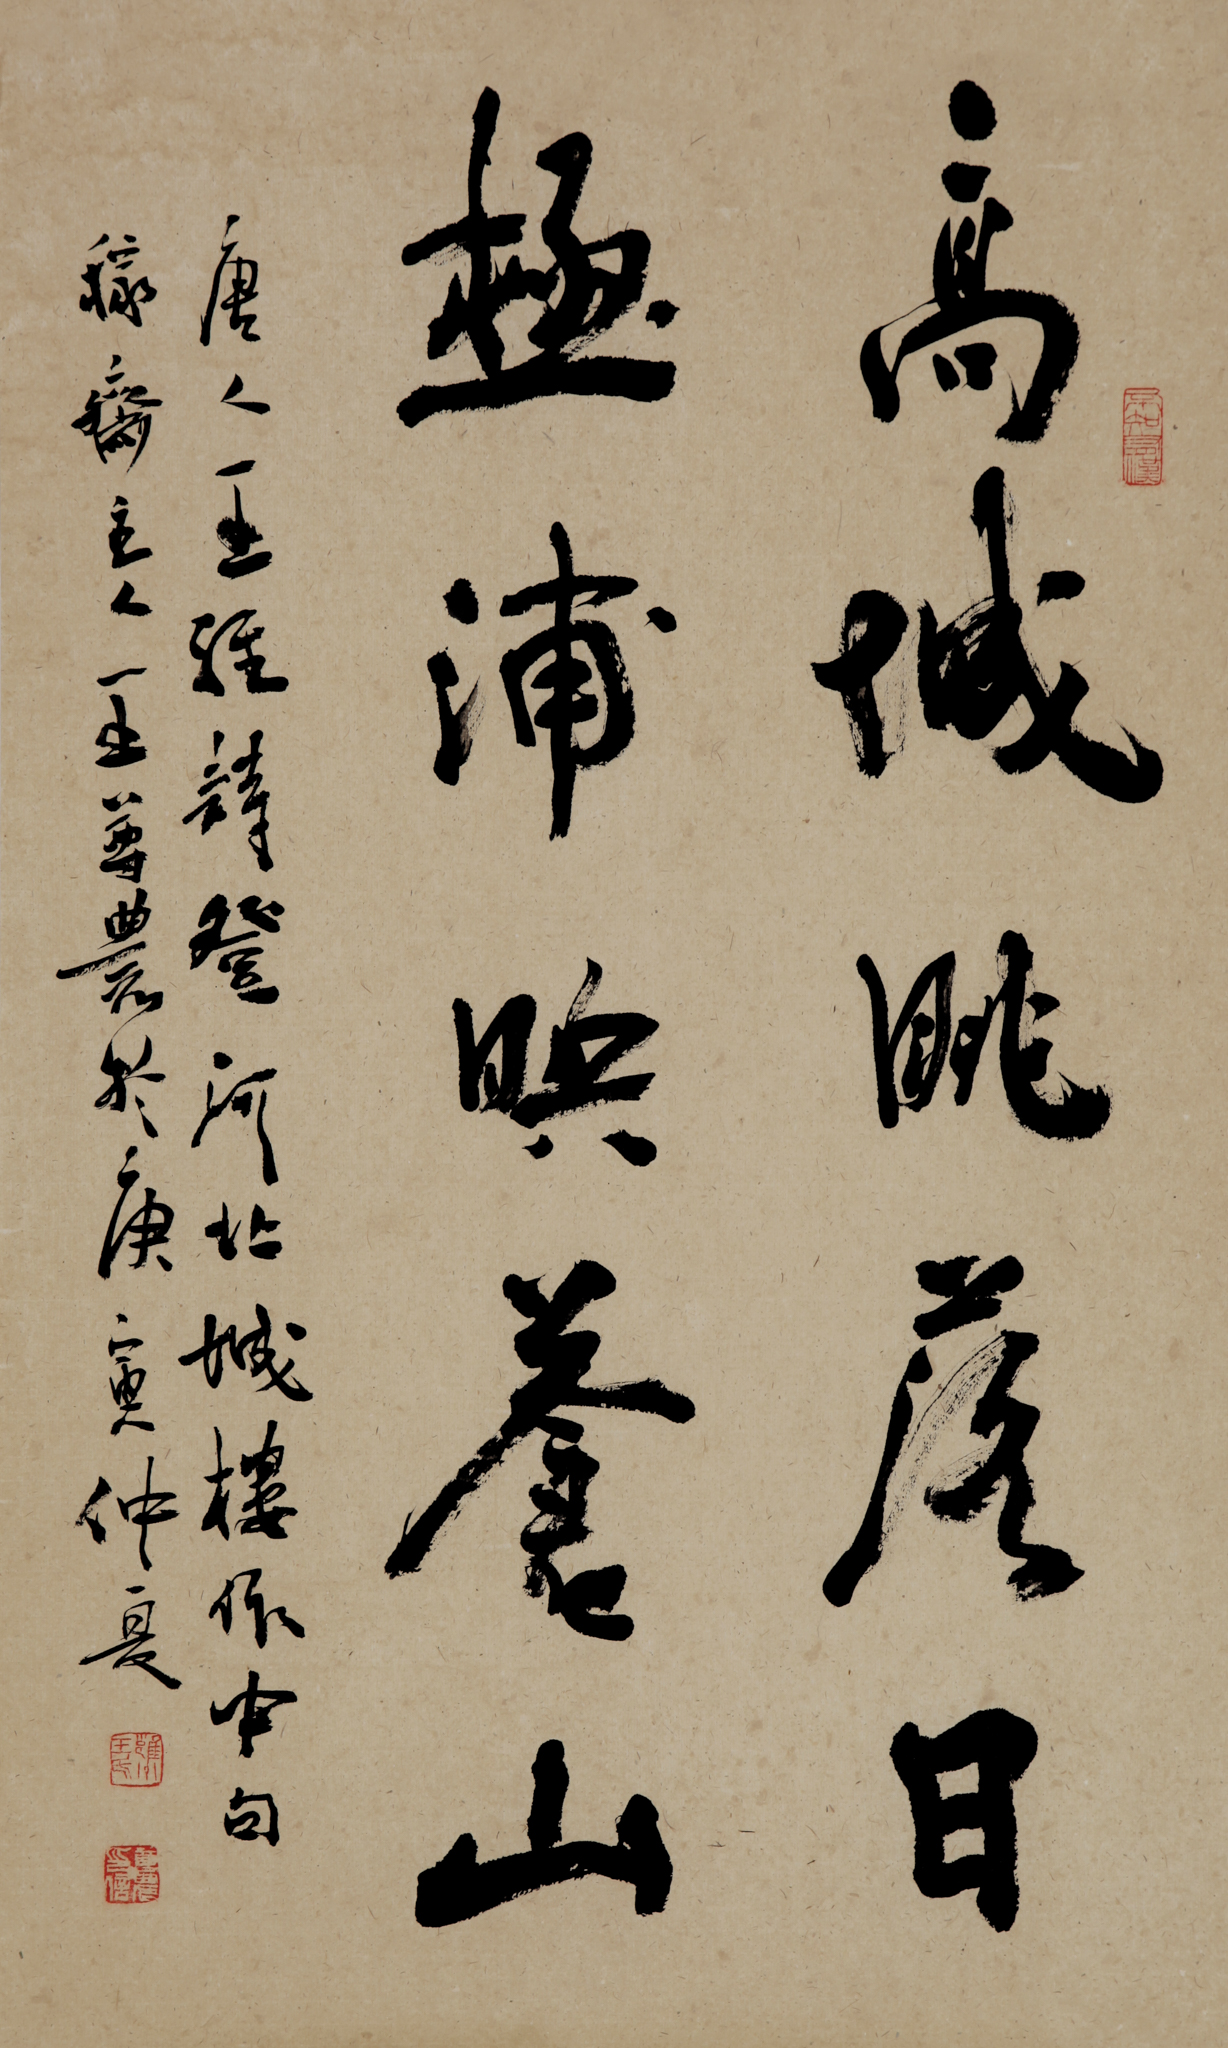 高城眺落日
極浦映蒼山
唐人王維詩登河北城樓作中句
稼齋主人王善農於庚寅仲夏